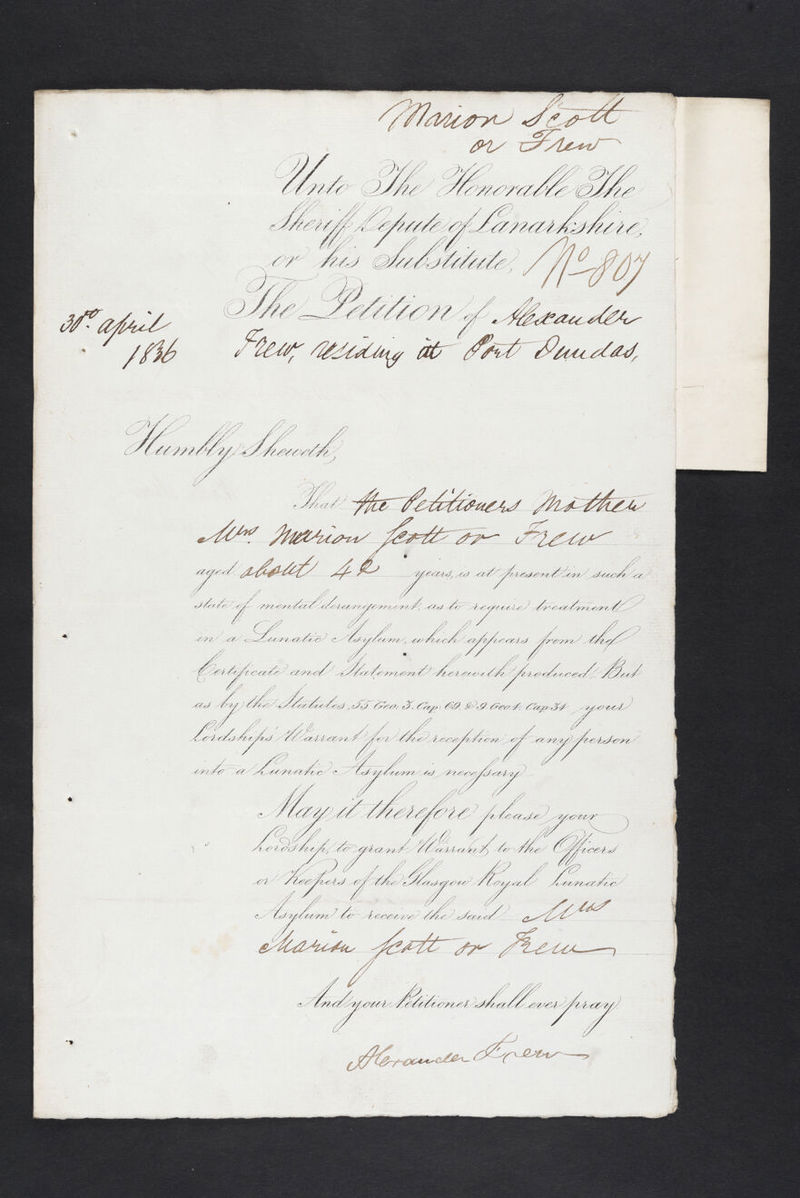 Marion Scott
or Frew
Unto The Honorable The
Sheriff Depute of Lanarkshire,
or his Substitute,
No 807
The Petition of Alexander
Frew, residing at Port Dundas,
30th april
1836
Humbly Sheweth,
That the Petitioners Mother
Mrs. Marion Scott or Frew
aged about 42 years, is at present in such a
state of mental derangement, as to require treatment
in a Lunatic Asylum, which appears from the
Certificate and Statement herewith produced. But
as by the Statutes, 55 Geo. 3. Cap. 69 & 9 Geo 4. Cap 34 your
Lordship's Warrant for the reception of any person
into a Lunatic Asylum is necessary
May it therefore please your
Lordship, to grant Warrant to the Officers
or Keepers of the Glasgow Royal Lunatic
Asylum to receive the said Mrs
Marion Scott or Frew
And your Petitioner shall ever pray
Alexander Frew